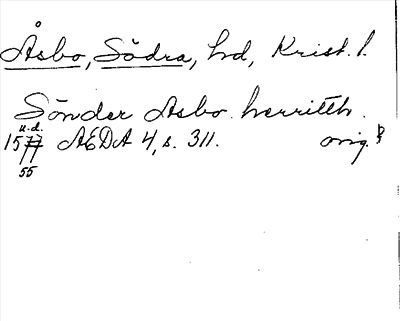 Åsbo, Södra, hd, Krist. l.
Sönder Asbo herritth.
u.d.
1577 AEDA 4, s. 311. orig.
55